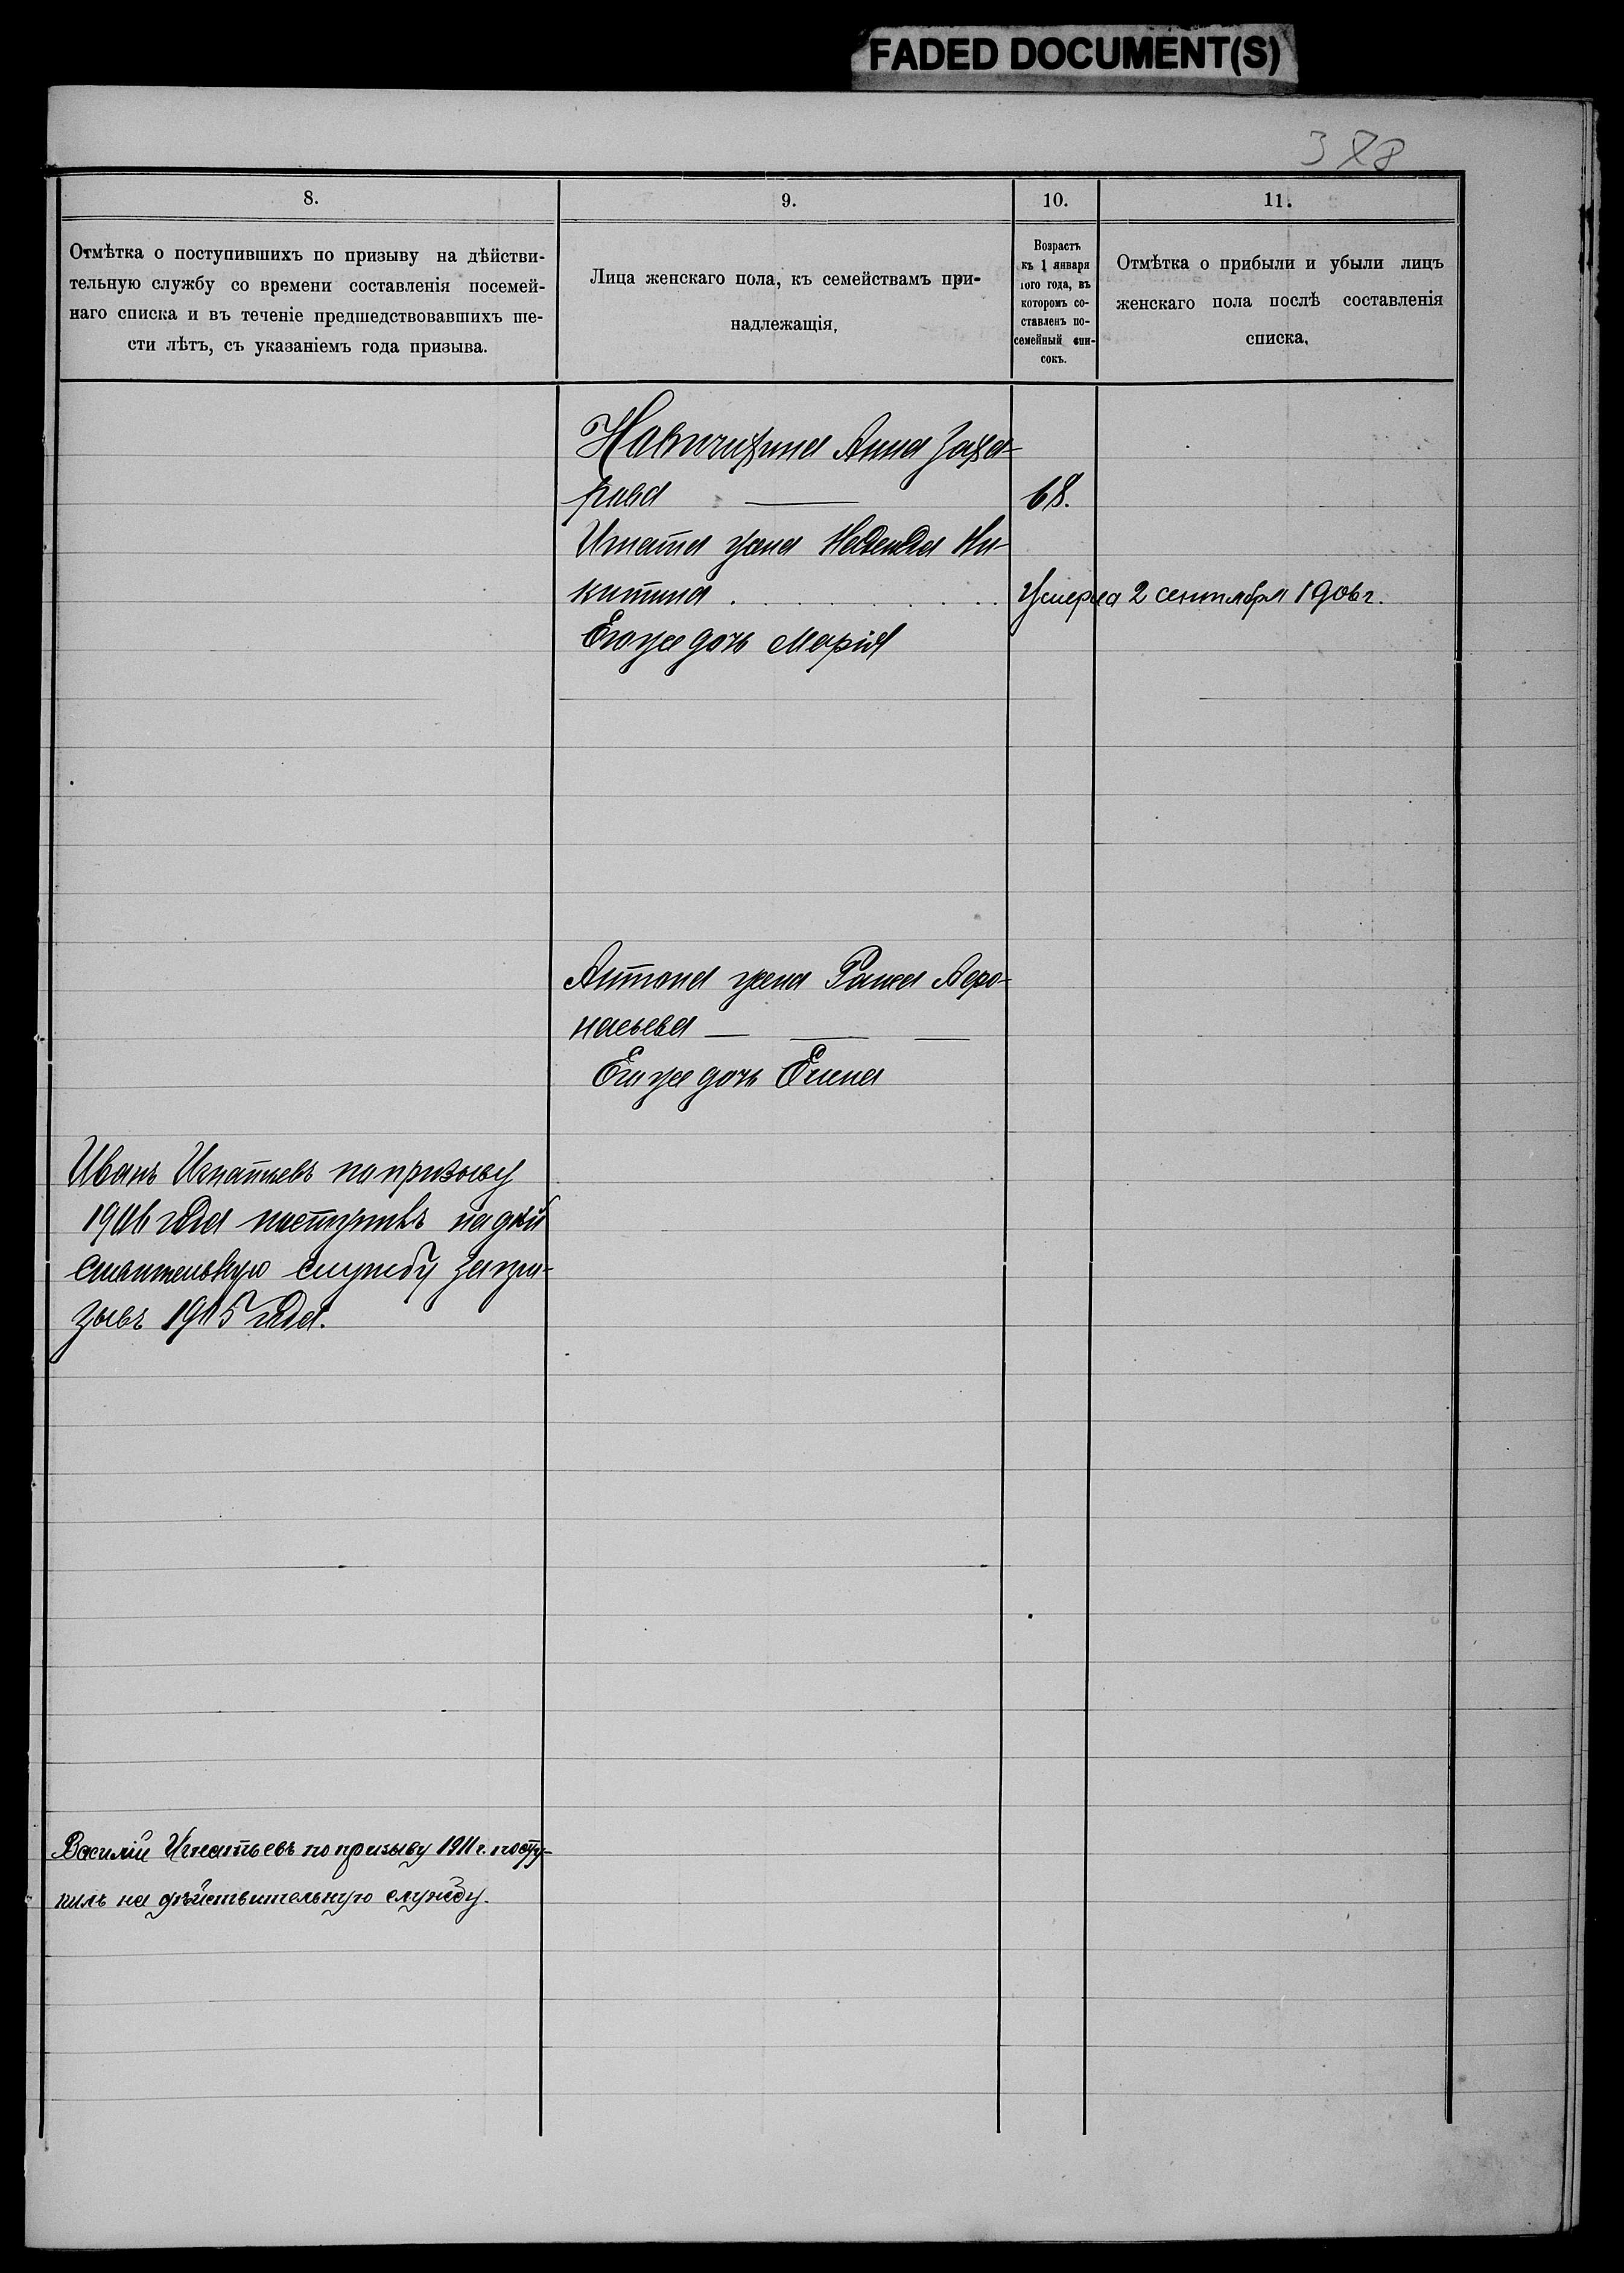 FADED DOCUMENT(S)
378
8.
9.
10.
11.
Отмѣтка о поступившихъ по призыву на дѣйстви-
тельную службу со времени составленія посемей-
наго списка и въ теченіе предшедствовавшихъ ше-
сти лѣтъ, съ указаніемъ года призыва.
Лица женскаго пола, къ семействамъ при-
надлежащія,
Возрастъ
къ 1 января
того года, въ
которомъ со-
ставленъ по-
семейный спи-
сокъ.
Отмѣтка о прибыли и убыли лицъ
женскаго пола послѣ составленія
списка.
Анна Заха-
рова 68.
Игната жена Надежда Ни-
китина
Умерла 2 сентября 1906 г.
Его же дочь Марія
Антона жена Афо-
насьева
Его же дочь Елена
Иванъ Игнатьевъ по призыву
1906 года поступилъ на дѣй
ствительную службу за при-
зывъ 1905 года.
Василій Игнатьевъ по призыву 1911 г. посту-
пилъ на дѣйствительную службу.